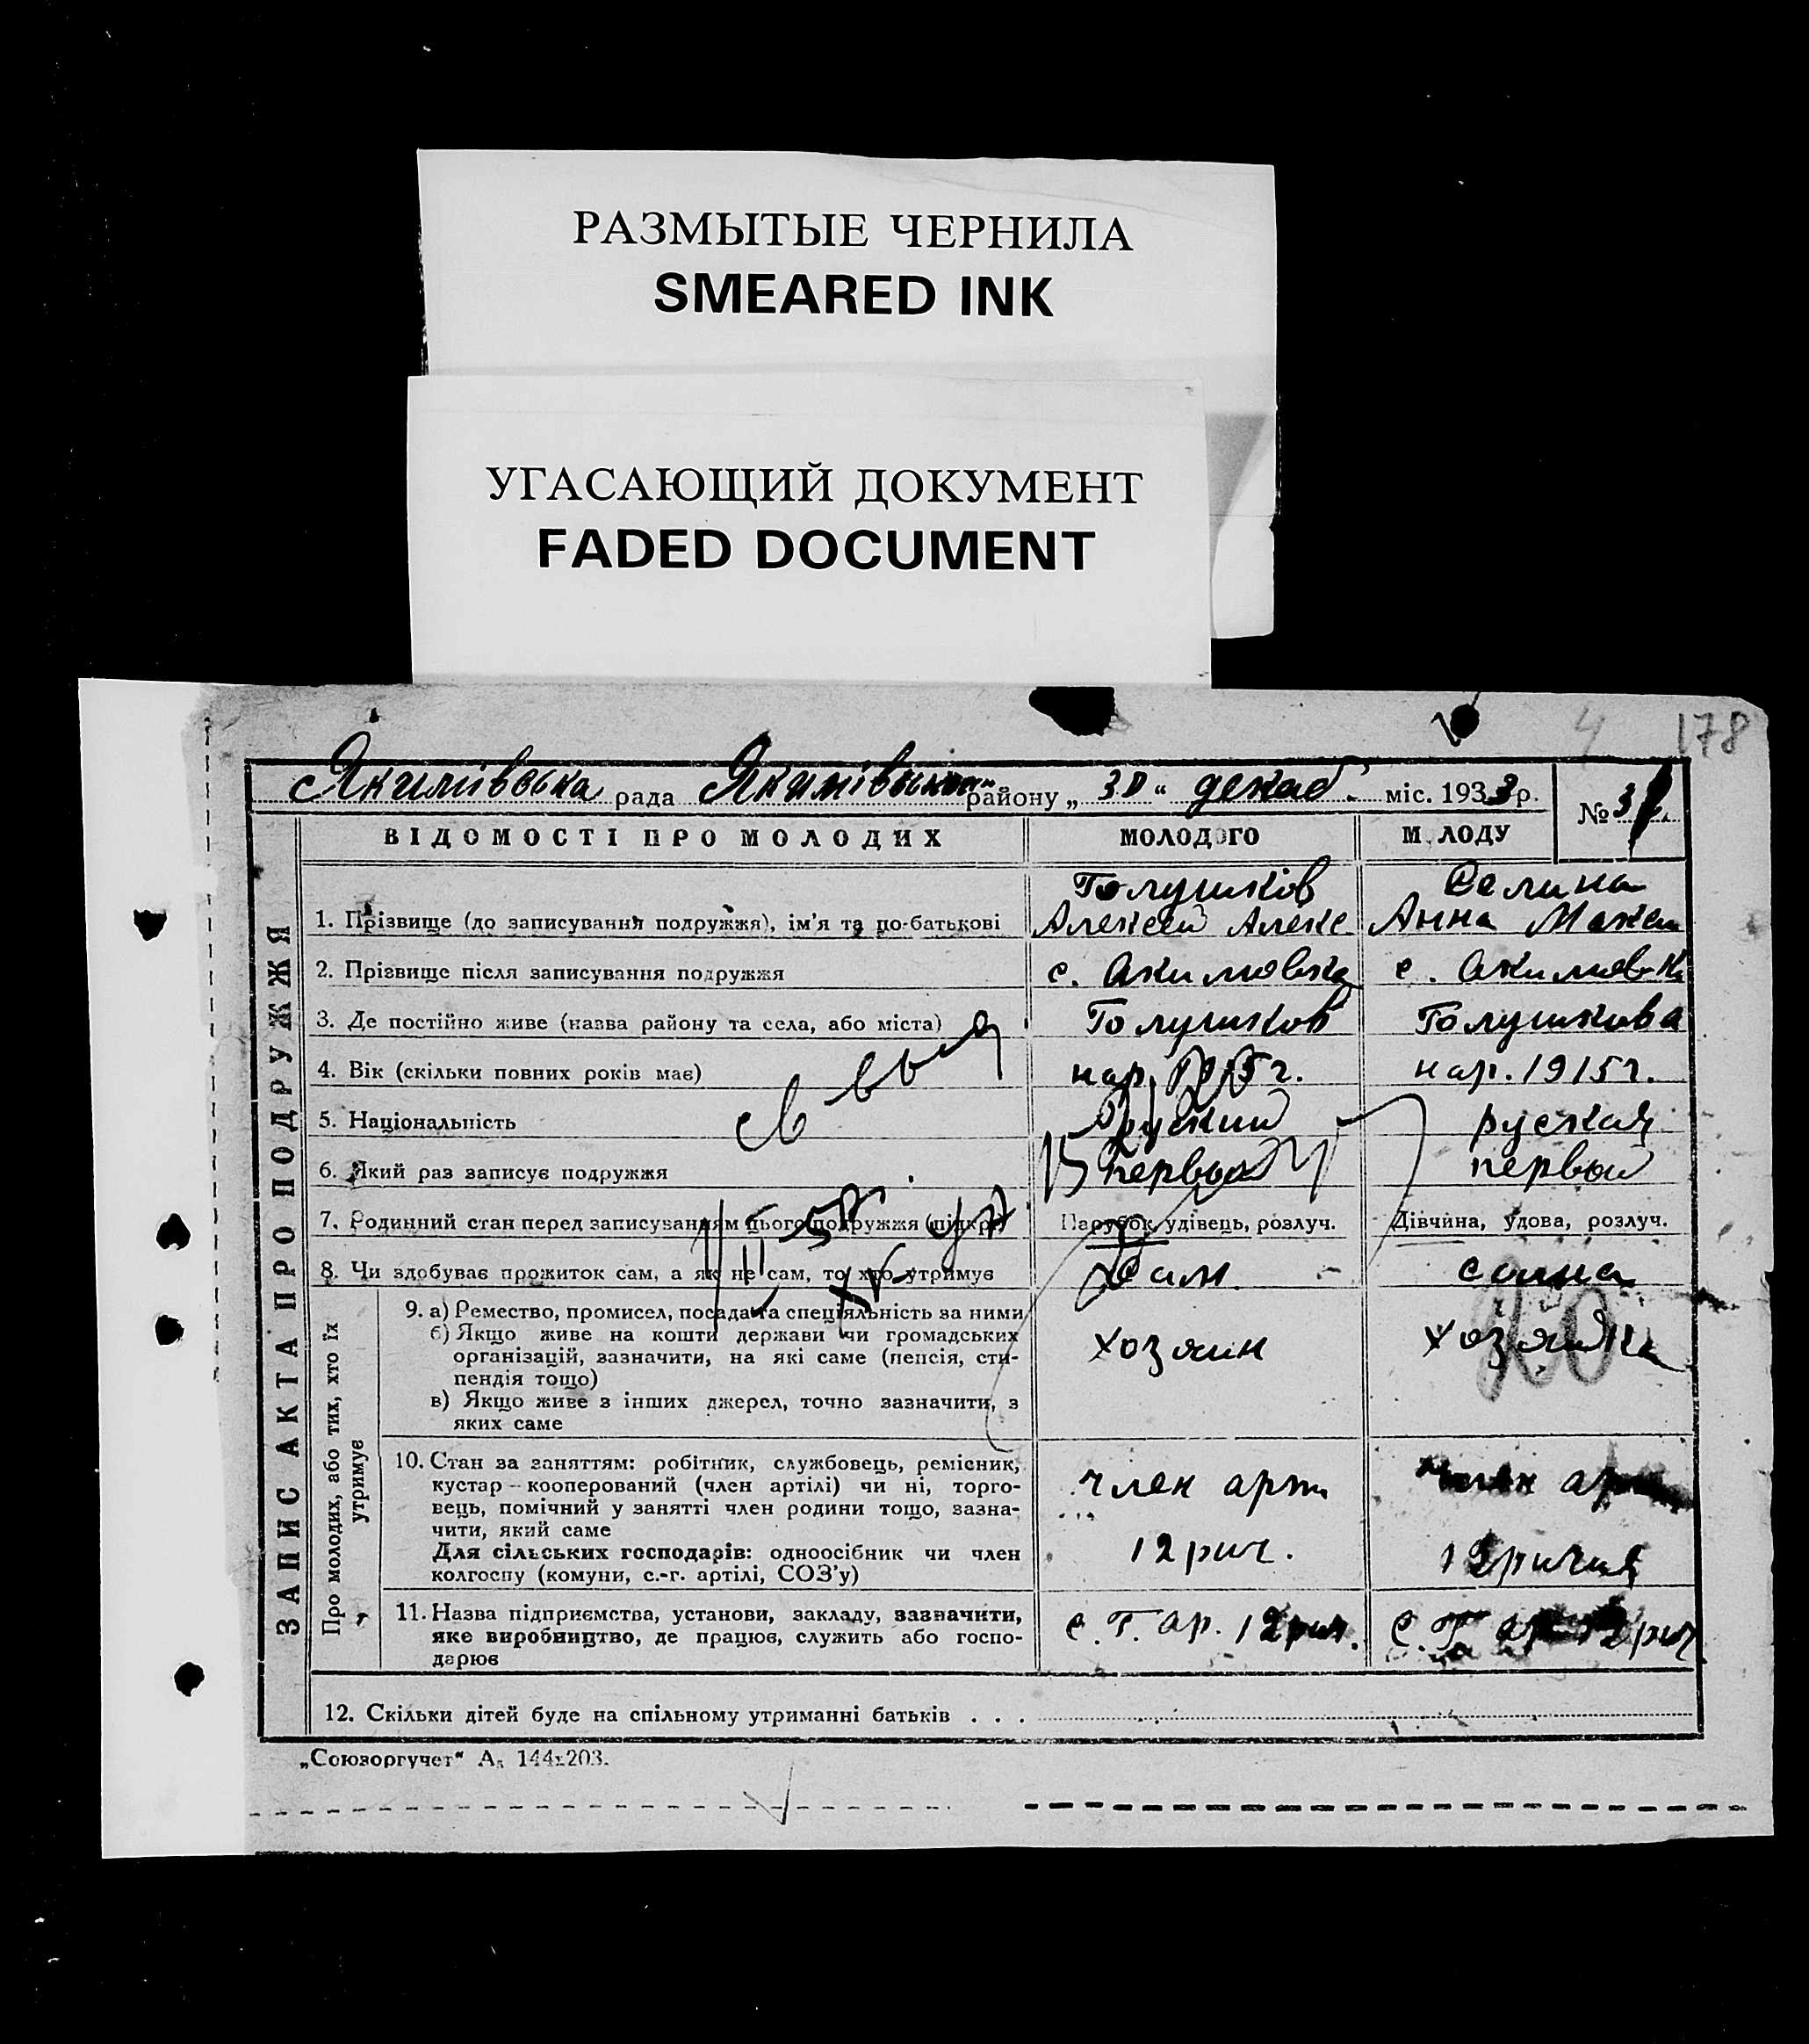 РАЗМЫТЫЕ ЧЕРНИЛА
SMEARED INK
УГАСАЮЩИЙ ДОКУМЕНТ
FADED DOCUMENT
4 178
с Якимівська рада Якимівська району „ 30 “ декаб. міс. 1933 р. № 3
ЗАПИС АКТА ПРО ПОДРУЖЖЯ
ВІДОМОСТІ ПРО МОЛОДИХ МОЛОДОГО М ЛОДУ
Голушков Селина
1. Прізвище (до записування подружжя), ім'я та по-батькові Алексей Алекс Анна Максим
2. Прізвище після записування подружжя с. Акимовка с. Акимовка
3. Де постійно живе (назва району та села, або міста) Голушков Голушкова
4. Вік (скільки повних років має) нар. 1915 г. нар. 1915 г.
5. Національність Руский руская
6. Який раз записує подружжя первый первый
7. Родинний стан перед записуванням цього подружжя (підкр.) Парубок, удівець, розлуч. Дівчина, удова, розлуч.
8. Чи здобуває прожиток сам, а як не сам, то хто утримує Сам сама
Про молодих, або тих, хто їх утримує
9. а) Ремество, промисел, посада та спеціяльність за ними
б) Якщо живе на кошти держави чи громадських
організацій, зазначити, на які саме (пенсія, сти-
пендія тощо)
хозяин хозяйка
20
в) Якщо живе з інших джерел, точно зазначити, з
яких саме
10. Стан за заняттям: робітник, службовець, ремісник,
кустар — кооперований (член артілі) чи ні, торго-
вець, помічний у занятті член родини тощо, зазна-
чити, який саме
член арт член арт
Для сільських господарів: одноосібник чи член
колгоспу (комуни, с.-г. артілі, СОЗ'у)
12 рич. 12 ричия
11. Назва підприємства, установи, закладу, зазначити,
яке виробництво, де працює, служить або госпо-
дарює
с. г. ар. 12 рич. с. г. ар 12 рич
12. Скільки дітей буде на спільному утриманні батьків . . .
„Союзоргучет“ А₅ 144х203.